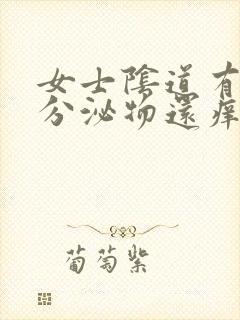 女士陰道有
分泌物還痒
葡萄紫